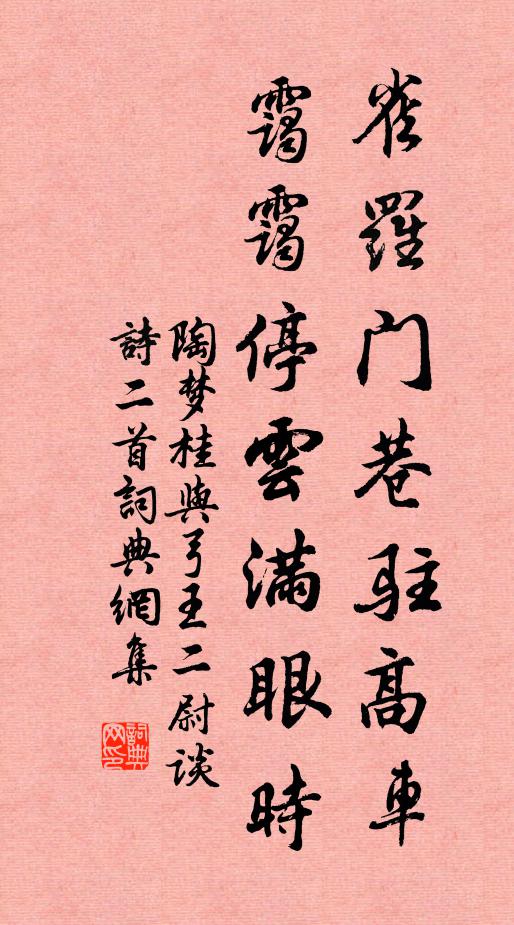 雀羅門巷駐高車
靄靄停雲滿眼時
陶梦桂與弓王二尉谈
詩二首詞典網集
詞典网印